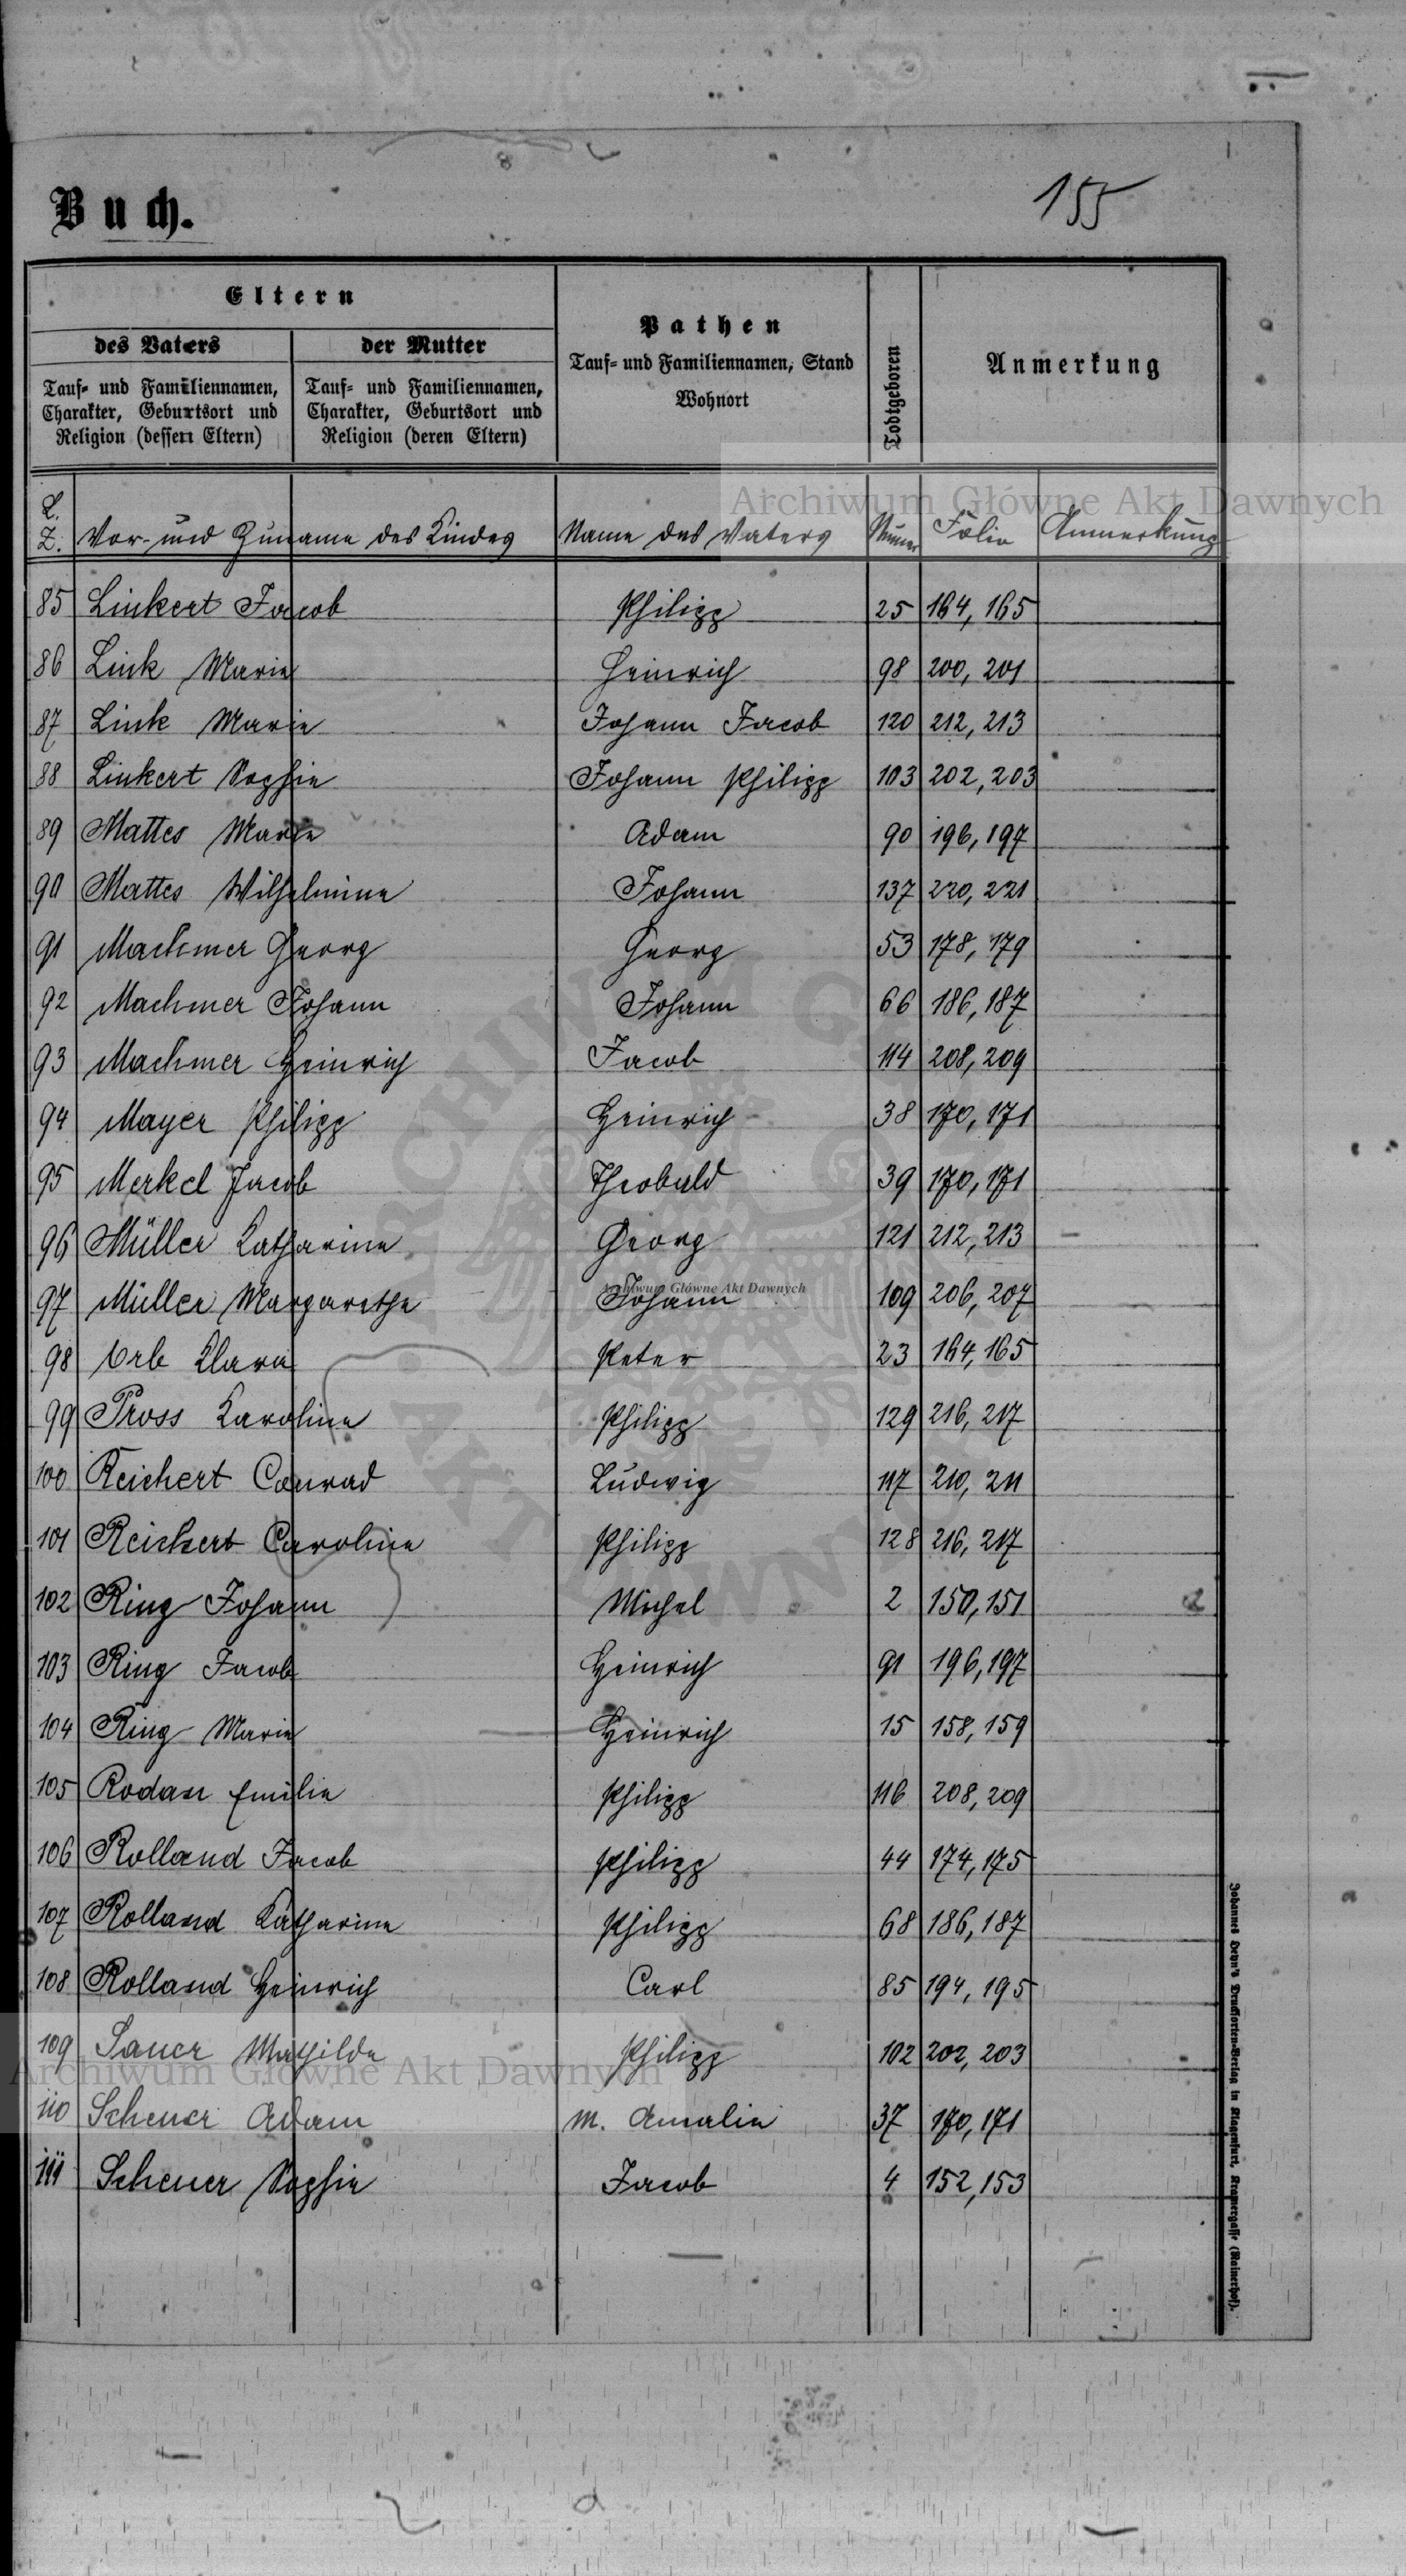 155
Buch.
Eltern
des Vaters
der Mutter
Tauf- und Familiennamen, Charakter, Geburtsort und Religion (dessen Eltern)
Tauf- und Familiennamen, Charakter, Geburtsort und Religion (deren Eltern)
Pathen
Tauf- und Familiennamen, Stand
Wohnort
Todtgeboren
Anmerkung
Archiwum Główne Akt Dawnych
L. Z. Vor- und Zuname des Kindes Name des Vaters Numer Folio Anmerkung
85 Linkert Jacob Philipp 25 164, 165
86 Link Marie Heinrich 98 200, 201
87 Link Marie Johann Jacob 120 212, 213
88 Linkert Sophie Johann Philipp 103 202, 203
89 Mattes Marie Adam 90 196, 197
90 Mattes Wilhelmine Johann 137 220, 221
91 Machmer Georg Georg 53 178, 179
92 Machmer Johann Johann 66 186, 187
93 Machmer Heinrich Jacob 114 208, 209
94 Mayer Philipp Heinrich 38 170, 171
95 Merkel Jacob Theobald 39 170, 171
96 Müller Katharina Georg 121 212, 213
97 Müller Margarethe Johann 109 206, 207
Archiwum Główne Akt Dawnych
98 Orb Klara Peter 23 164, 165
99 Pross Karoline Philipp 129 216, 217
100 Reichert Conrad Ludwig 117 210, 211
101 Reichert Caroline Philipp 128 216, 217
102 Ring Johann Michel 2 150, 151
103 Ring Jacob Heinrich 91 196, 197
104 Ring Marie Heinrich 15 158, 159
105 Rodan Emilie Philipp 116 208, 209
106 Rolland Jacob Philipp 44 174, 175
107 Rolland Katharina Philipp 68 186, 187
108 Rolland Heinrich Carl 85 194, 195
109 Sauer Mathilde Philipp 102 202, 203
Archiwum Główne Akt Dawnych
110 Scheuer Adam M. Amalia 37 170, 171
111 Scheuer Sophie Jacob 4 152, 153
Johannes Heyn's Drucksorten-Verlag in Klagenfurt, Kramergasse (Rainerhof).